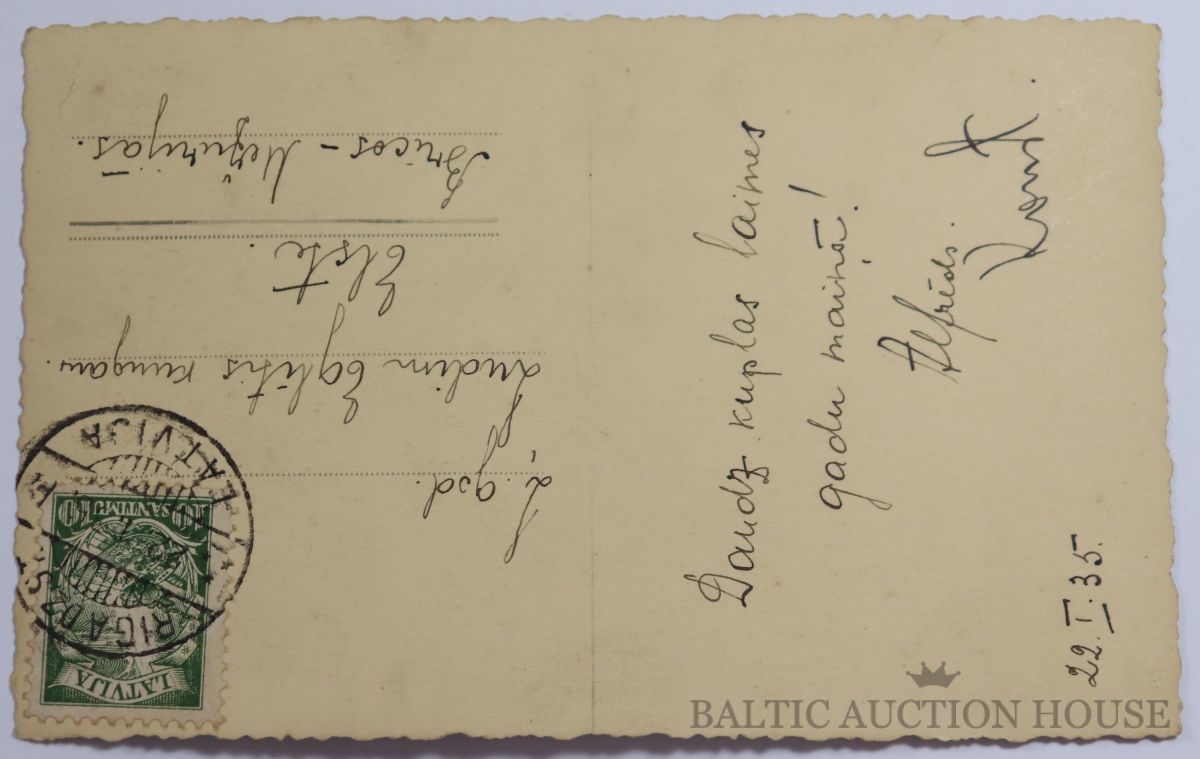 Daudz kuplas laimes
gadu maiņā!
Alfrēds.
22.I.35.
L. god.
Eglītis kungam.
Elste.
LATVIJA
10 SANTIMU 10
RIGA
LATVIJA
BALTIC AUCTION HOUSE